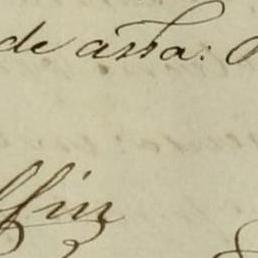 de assa:
ffin